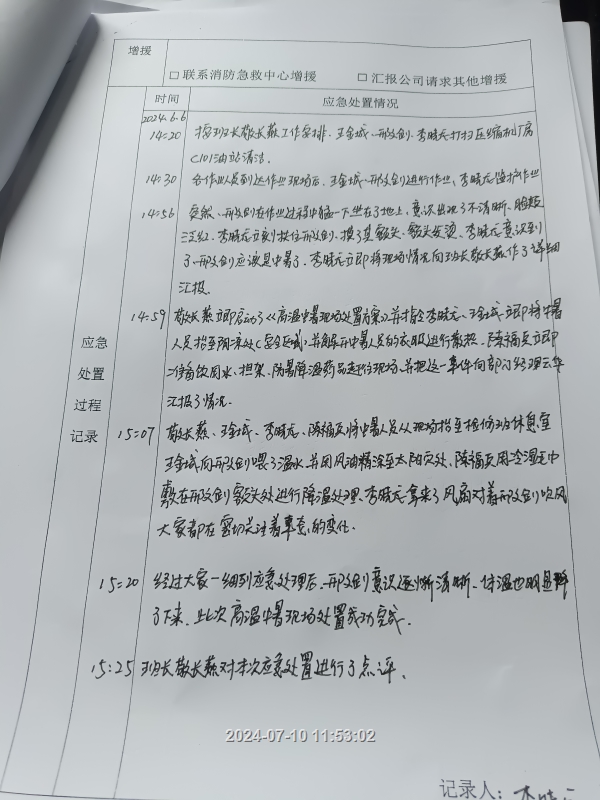 增援
□联系消防急救中心增援 □汇报公司请求其他增援
时间 应急处置情况
2024.6.6
14:20 按班长敬长燕工作安排、王金城、邢政钊、李晓龙打扫压缩机厂房
C101油站清洁。
14:30 各作业人员到达作业现场后、王金城、邢政钊进行作业、李晓龙监护作业
14:56 突然、邢政钊在作业过程中 一下坐在了地上、意识出现了不清晰、脸颊
泛红、李晓龙立刻扶住邢政钊、摸了其额头、额头发烫、李晓龙意识到
了、邢政钊应该是中暑了、李晓龙立即将现场情况向班长敬长燕作了详细
汇报。
14:59 敬长燕立即启动了《高温中暑现场处置方案》并指令李晓龙、王金城立即将中暑
应急
人员抬至阴凉处(安全区域)并解开中暑人员的衣服进行散热、陈福兵立即
处置
准备饮用水、担架、防暑降温药品送往现场、并把这一事件向部门经理 华
过程
汇报了情况。
记录
15:07 敬长燕、王金城、李晓龙、陈福兵将中暑人员从现场抬至检修班休息室
王金城向邢政钊喂了温水、并用风油精涂至太阳穴处、陈福兵用冷湿毛巾
敷在邢政钊额头处进行降温处理、李晓龙拿来了风扇对着邢政钊吹风
大家都在密切关注着事态的变化。
15:20 经过大家一细到应急处理后、邢政钊意识逐渐清晰、体温也明显降
了下来、此次高温中暑现场处置成功完成。
15:25 班长敬长燕对本次应急处置进行了点评、
2024-07-10 11:53:02
记录人: